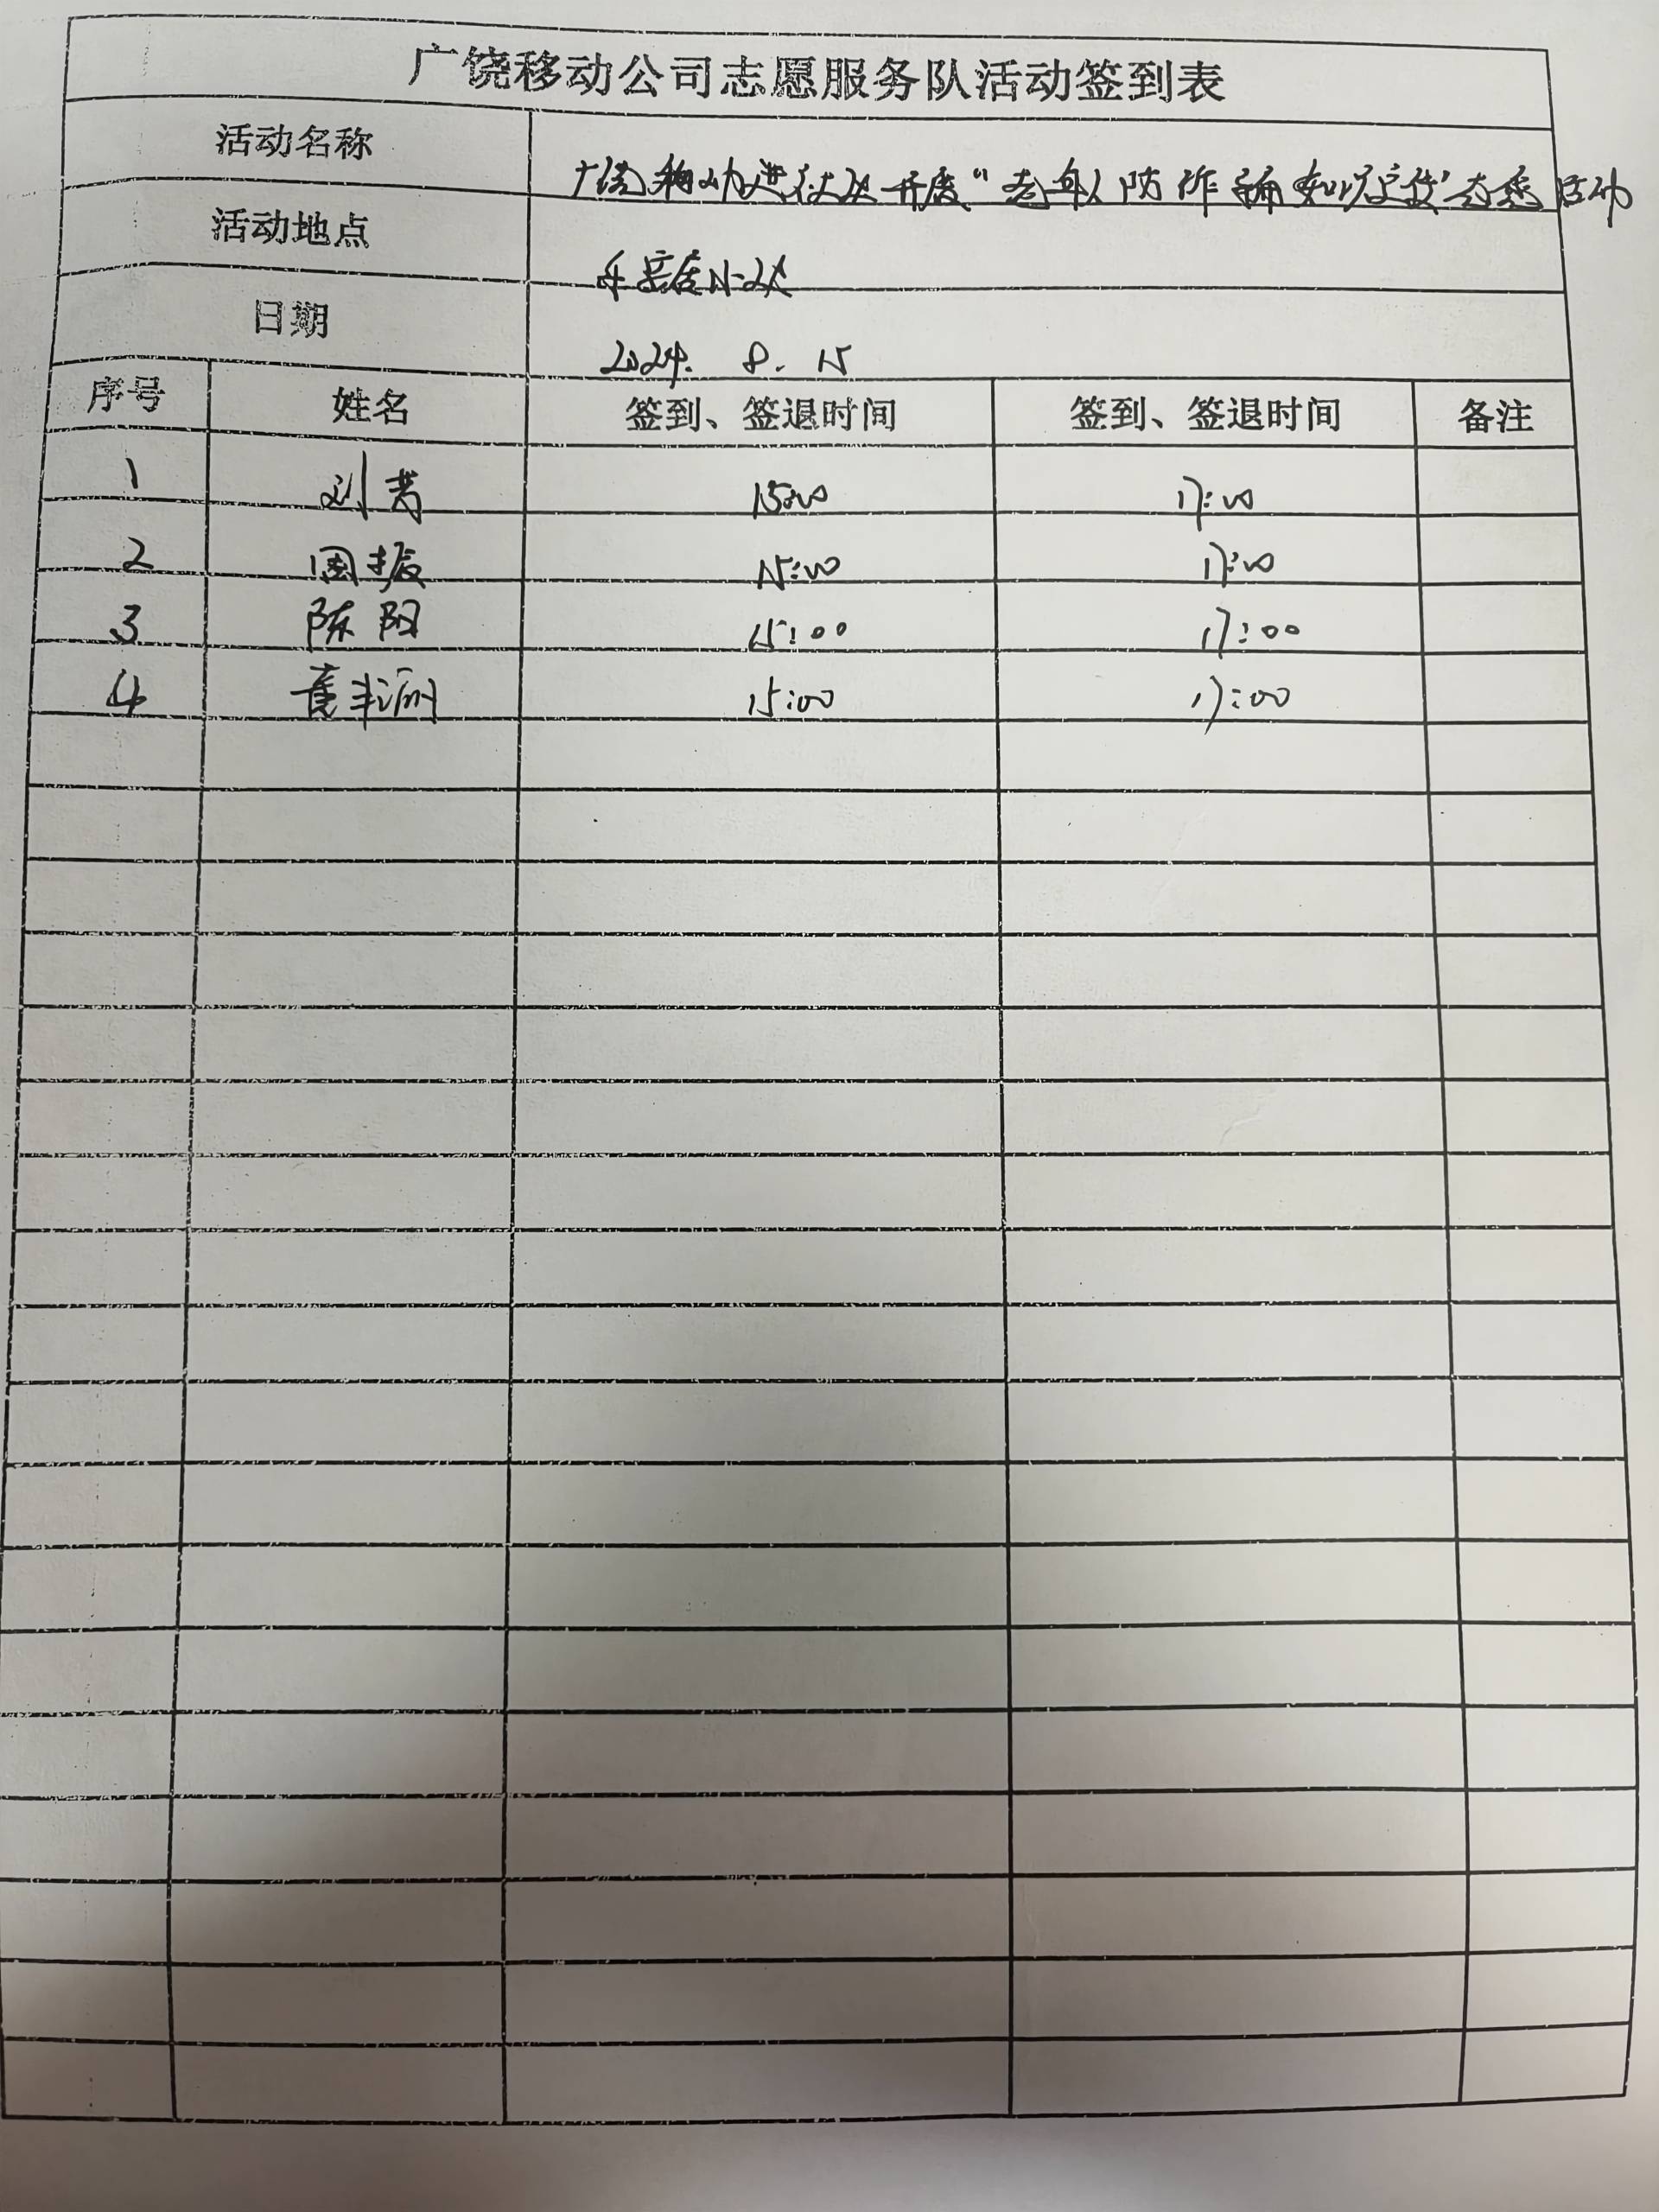 广饶移动公司志愿服务队活动签到表
活动名称 广饶移动进社区开展“老年人防诈骗知识宣传”志愿活动
活动地点 乐安居小区
日期 2024. 8. 15
序号 姓名 签到、签退时间 签到、签退时间 备注
1 刘芳 15:00 17:00
2 周振 15:00 17:00
3 陈阳 15:00 17:00
4 15:00 17:00